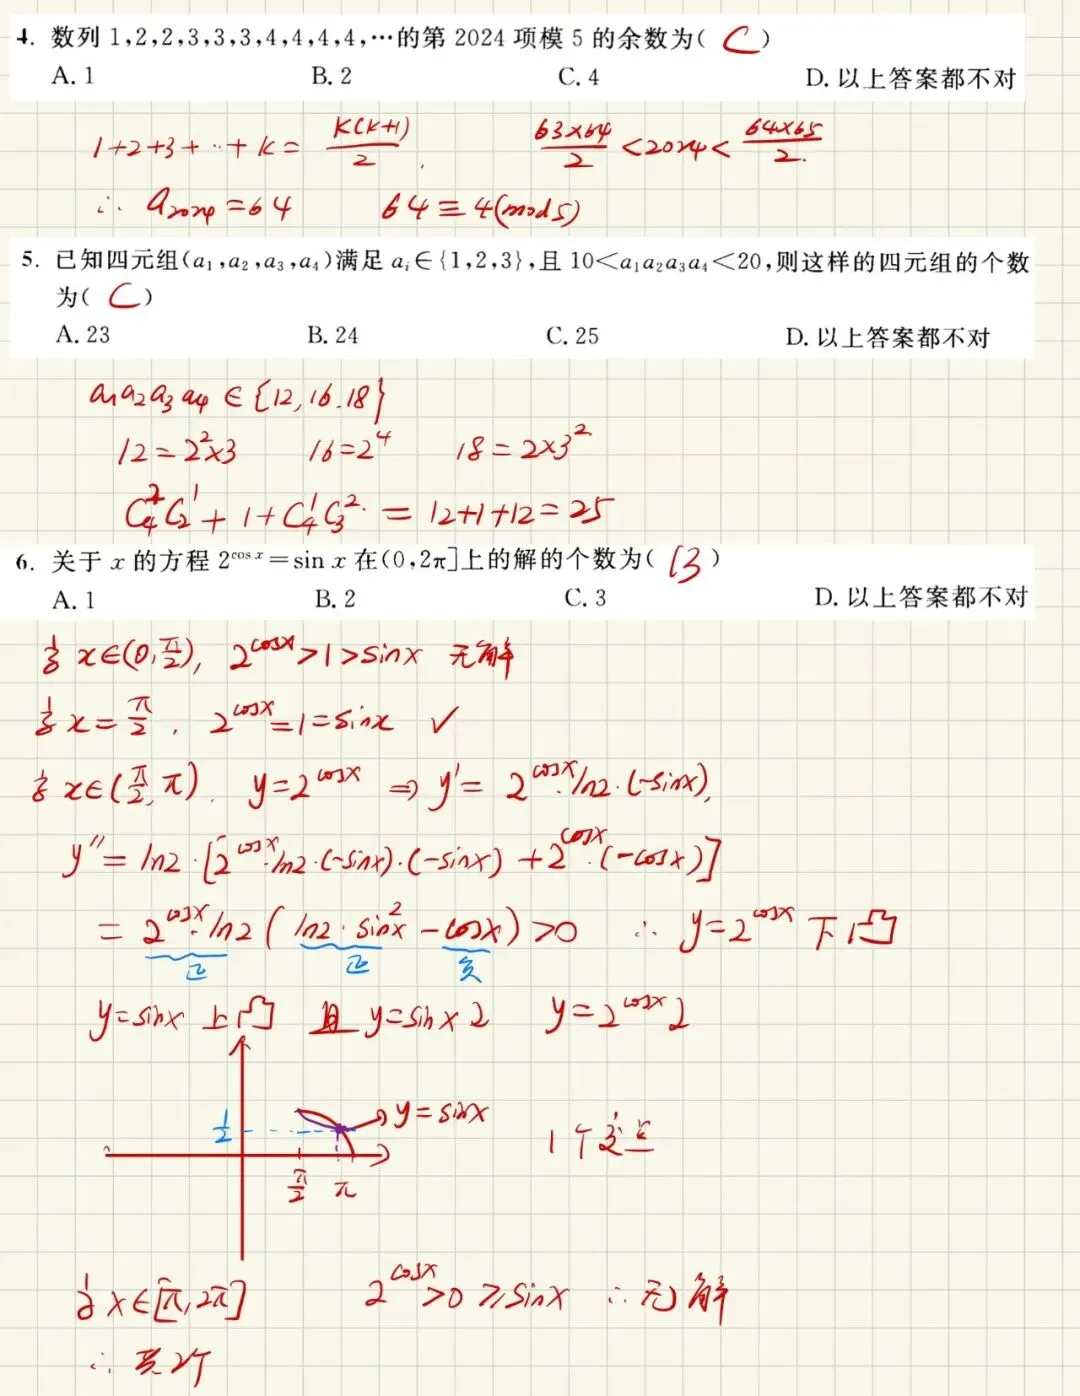 4. 数列 1,2,2,3,3,3,4,4,4,4,⋯的第 2024 项模 5 的余数为( C )
A. 1 B. 2 C. 4 D. 以上答案都不对
1+2+3+⋯+k= k(k+1)/2 . 63×64/2 <2024< 64×65/2.
∴ a₂₀₂₄=64 64≡4(mod5)
5. 已知四元组(a₁,a₂,a₃,a₄)满足 aᵢ∈{1,2,3},且 10<a₁a₂a₃a₄<20,则这样的四元组的个数
为( C )
A. 23 B. 24 C. 25 D. 以上答案都不对
a₁a₂a₃a₄ ∈ {12,16.18}
12=2²×3 16=2⁴ 18=2×3²
C₄²C₂¹+1+C₄¹C₃². = 12+1+12=25
6. 关于 x 的方程 2^cos x=sin x 在(0,2π]上的解的个数为( B )
A. 1 B. 2 C. 3 D. 以上答案都不对
当 x∈(0,π/2), 2^cosx>1>sinx 无解
当 x=π/2, 2^cosx=1=sinx ✓
当 x∈(π/2,π). y=2^cosx ⇒ y′= 2^cosx·ln2·(-sinx),
y″= ln2·[2^cosx·ln2·(-sinx)·(-sinx)+2^cosx·(-cosx)]
= 2^cosx·ln2(ln2·sin²x-cosx)>0 ∴ y=2^cosx 下凸
正 正 负
y=sinx 上凸 且 y=sinx↘ y=2^cosx↘
y=sinx
1/2 1个交点
π/2 π
当 x∈[π,2π] 2^cosx>0⩾sinx ∴无解
∴ 共2个